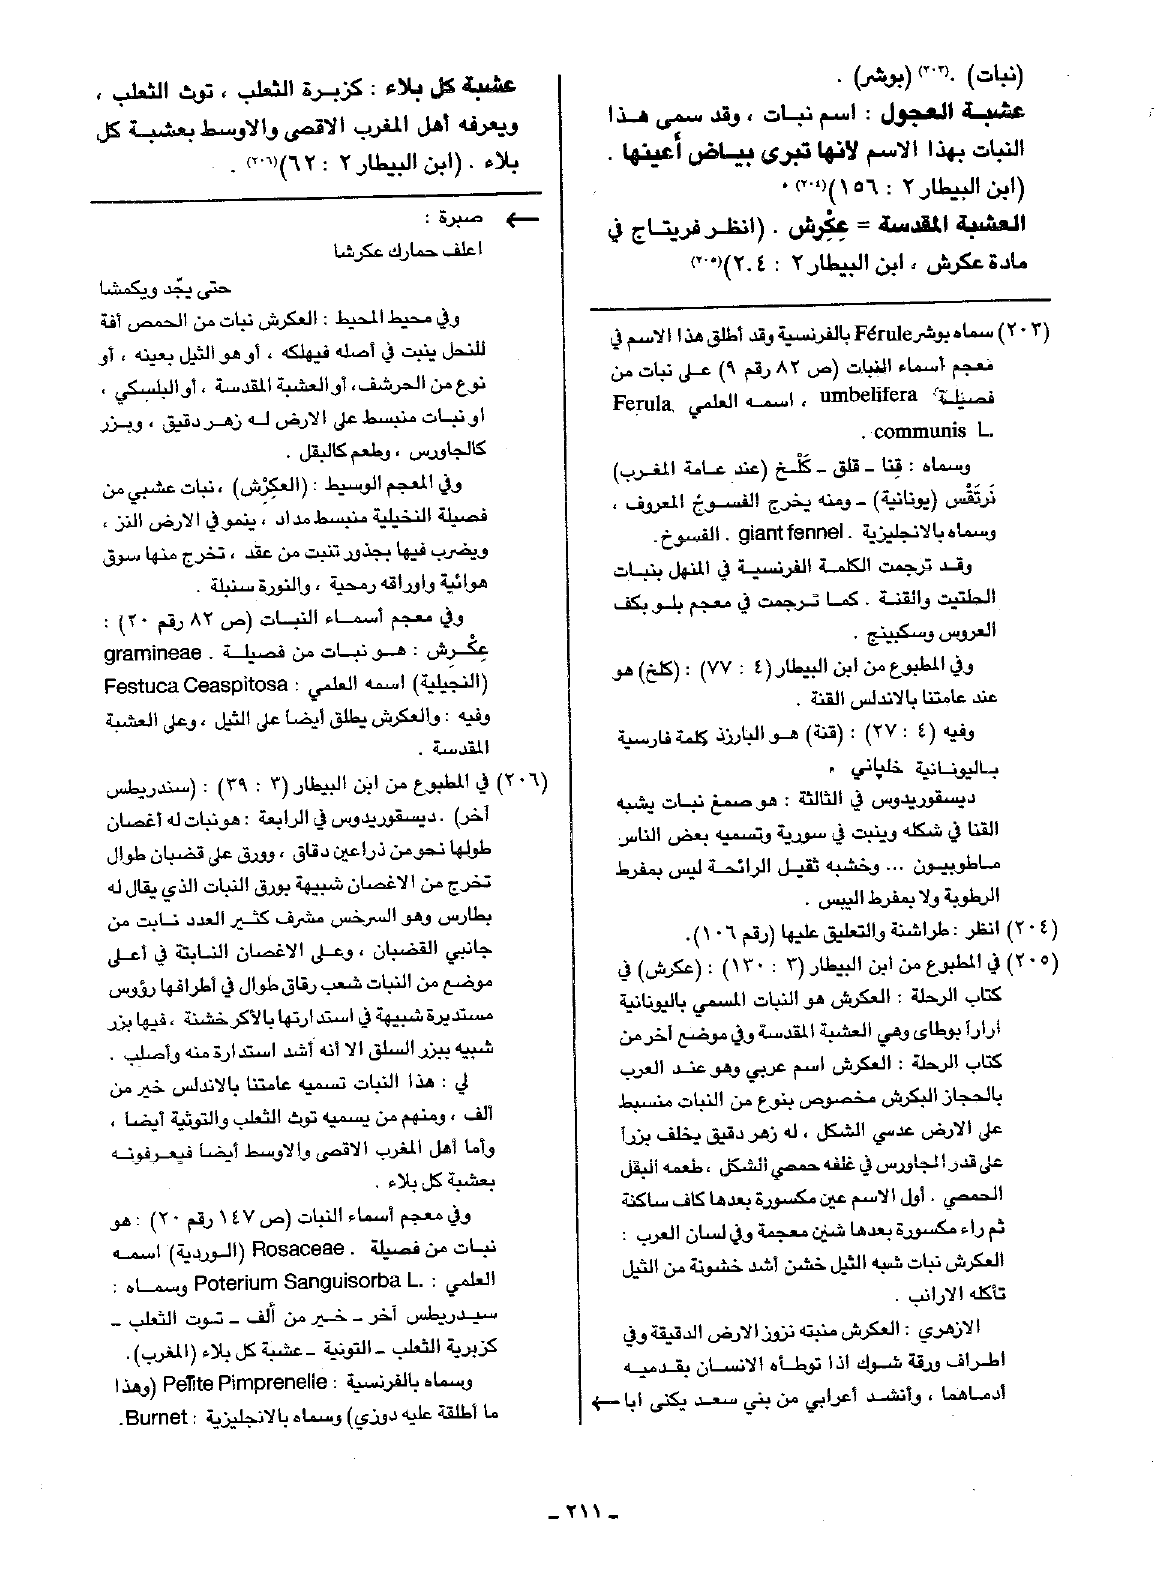 (نبات) .(٢٠٣) (بوشر) .
عشبة العجول : اسم نبات ، وقد سمي هذا
النبات بهذا الاسم لانها تبرى بياض أعينها .
(ابن البيطار ٢ : ١٥٦)(٢٠٤) .
العشبة المقدسة = عِكْرِش . (انظر فريتاج في
مادة عكرش ، ابن البيطار ٢ : ٢٠٤)(٢٠٥)
(٢٠٣) سماه بوشر Férule بالفرنسية وقد أطلق هذا الاسم في
معجم أسماء النبات (ص ٨٢ رقم ٩) على نبات من
فصيلة umbelifera ، اسمه العلمي Ferula
communis L. .
وسماه : قنا - قلق - كَلْخ (عند عامة المغرب)
نَرتَقْس (يونانية) - ومنه يخرج الفسوخ المعروف ،
وسماه بالانجليزية giant fennel. . الفسوخ.
وقد ترجمت الكلمة الفرنسية في المنهل بنبات
الحلتيت والقنة . كما ترجمت في معجم بلو بكف
العروس وسكبينج .
وفي المطبوع من ابن البيطار (٤ : ٧٧) : (كلخ) هو
عند عامتنا بالاندلس القنة .
وفيه (٤ : ٢٧) : (قنة) هو البارزذ كلمة فارسية
باليونانية خلباني .
ديسقوريدوس في الثالثة : هو صمغ نبات يشبه
القنا في شكله وينبت في سورية وتسميه بعض الناس
ماطوبيون ... وخشبه ثقيل الرائحة ليس بمفرط
الرطوبة ولا بمفرط اليبس .
(٢٠٤) انظر : طراشنة والتعليق عليها (رقم ١٠٦).
(٢٠٥) في المطبوع من ابن البيطار (٣ : ١٣٠) : (عكرش) في
كتاب الرحلة : العكرش هو النبات المسمي باليونانية
أرارأ بوطاى وهي العشبة المقدسة وفي موضع آخر من
كتاب الرحلة : العكرش اسم عربي وهو عند العرب
بالحجاز البكرش مخصوص بنوع من النبات منسبط
على الارض عدسي الشكل ، له زهر دقيق يخلف بزراً
على قدر الجاورس في غلفه حمصي الشكل ، طعمه البقل
الحمصي . أول الاسم عين مكسورة بعدها كاف ساكنة
ثم راء مكسورة بعدها شين معجمة وفي لسان العرب :
العكرش نبات شبه الثيل خشن أشد خشونة من الثيل
تأكله الارانب .
الازهري : العكرش منبته نزوز الارض الدقيقة وفي
اطراف ورقة شوك اذا توطأه الانسان بقدميه
أدماهما ، وأنشد أعرابي من بني سعد يكنى أبا ←
عشبة كل بلاء : كزبرة الثعلب ، توث الثعلب ،
ويعرفه أهل المغرب الاقصى والاوسط بعشبة كل
بلاء . (ابن البيطار ٢ : ٦٢)(٢٠٦) .
← صبرة :
اعلف حمارك عكرشا
حتى يجّد ويكمشا
وفي محيط المحيط : العكرش نبات من الحمص آفة
للنحل ينبت في أصله فيهلكه ، أو هو الثيل بعينه ، أو
نوع من الحرشف، أو العشبة المقدسة ، أو البلسكي ،
او نبات منبسط على الارض له زهر دقيق ، وبزر
كالجاورس ، وطعم كالبقل .
وفي المعجم الوسيط : (العكرْش) ، نبات عشبي من
فصيلة النخيلية منبسط مداد ، ينمو في الارض النز ،
ويضرب فيها بجذور تنبت من عقد ، تخرج منها سوق
هوائية واوراقه رمحية ، والنورة سنبلة .
وفي معجم أسماء النبات (ص ٨٢ رقم ٢٠) :
عِكْرش : هو نبات من فصيلة . gramineae
(النجيلية) اسمه العلمي : Festuca Ceaspitosa
وفيه : والعكرش يطلق أيضا على الثيل ، وعلى العشبة
المقدسة .
(٢٠٦) في المطبوع من ابن البيطار (٣ : ٣٩) : (سندريطس
آخر) . ديسقوريدوس في الرابعة : هو نبات له أغصان
طولها نحو من ذراعين دقاق ، وورق على قضبان طوال
تخرج من الاغصان شبيهة بورق النبات الذي يقال له
بطارس وهو السرخس مشرف كثير العدد نابت من
جانبي القضبان ، وعلى الاغصان النابتة في أعلى
موضع من النبات شعب رقاق طوال في أطرافها رؤوس
مستديرة شبيهة في استدارتها بالأكر خشنة ، فيها بزر
شبيه ببزر السلق الا أنه أشد استدارة منه وأصلب .
لي : هذا النبات تسميه عامتنا بالاندلس خير من
ألف ، ومنهم من يسميه توث الثعلب والتوثية أيضا ،
وأما أهل المغرب الاقصى والاوسط أيضا فيعرفونه
بعشبة كل بلاء .
وفي معجم أسماء النبات (ص ١٤٧ رقم ٢٠) : هو
نبات من فصيلة . Rosaceae (الوردية) اسمه
العلمي : Poterium Sanguisorba L. وسماه :
سيدريطس آخر - خير من ألف - توت الثعلب -
كزبرية الثعلب - التوتية - عشبة كل بلاء (المغرب).
وسماه بالفرنسية : Petite Pimprenelle (وهذا
ما أطلقه عليه دوزي) وسماه بالانجليزية : Burnet.
- ٢١١ -